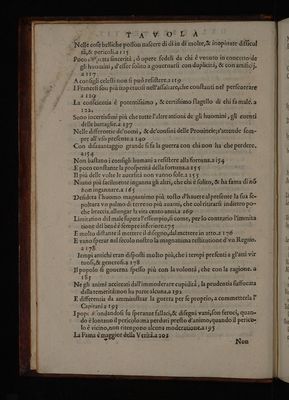 TAVOLA
Nelle cose belliche posson nascere di dì in dì molte, & inopinate difficul
tà, & pericoli. a 115
Poco sincerità, ò opere fedeli da chi è venuto in concetto de
gli huomini, d'esser solito a gouernarsi con duplicità, & con artificij.
a 117
A consigli celesti non si può resistere. a 119
I Francesi son più impetuosi nell'assaltare, che constanti nel perseuerare
a 129
La conscientia è potentissimo, & certissimo flagello di chi fa male. a
122.
Sono incertissimi più che tutte l'altre attioni de gli huomini, gli euenti
delle battaglie. a 137
Nelle differentie de'nomi, & de'confini delle Prouincie, s'attende sempre
all'vso presente a 140
Con disauantaggio grande si fa la guerra con chi non ha che perdere.
a 154
Non bastano i consigli humani a resistere alla fortuna. a 154
E poco constante la prosperità della fortuna a 155
Il più delle volte le auersità non vanno sole. a 155
Niuno più facilmente inganna gli altri, che chi è solito, & ha fama di nō
non ingannare. a 165
Desidera l'huomo magnanimo più tosto d'hauer al presente la sua se-
poltura vn palmo di terreno più auanti, che col ritrarsi in dietro po-
che braccia, allungar la vita cento anni. a 169
L'imitation del male supera l'essempio, si come, per lo contrario l'immita
tione del bene è sempre inferiore. 175
E molto distante il mettere il disegno, dal mettere in atto. a 176
E vano sperar nel secolo nostro la magnanima restitutione d'vn Regno.
a 178
Tempi antichi eran disposti molto più, che i tempi presenti a gl'atti vir
tuosi, & generosi. a 178
Il popolo si gouerna spesso più con la volontà, che con la ragione. a
185
Ne gli animi acciecati dall'immoderate cupidità, la prudentia suffocata
dalla temerità non ha parte alcuna. a 192
E differentia da amministrar la guerra per se proprio, a commetterla l'
Capitani a 193
I popoli ondandosi su speranze fallaci, & disegni vani, son feroci, quan-
do è lontano il pericolo; ma perduti presto d'animo, quando il perico-
lo è vicino, non ritengono alcuna moderatione. a 195
La Fama è maggior della Verità. a 202
Non